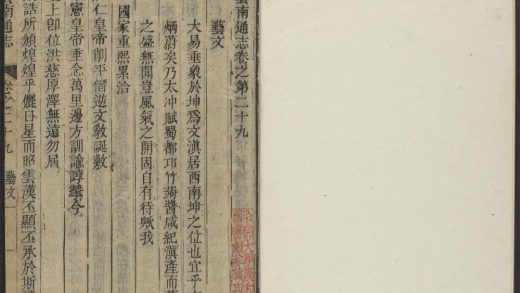 雲南通志卷之第二十九
藝文
大易垂象於坤爲文滇居西南坤之位也宜乎
炳蔚矣乃太冲賦蜀都邛竹蒟醬咸紀滇產而
之盛無聞豈風氣之開固自有待歟我
國家重熙累洽
仁皇帝削平僭逆文教誕敷
憲皇帝垂念萬里邊方訓諭諄摯今
上卽位洪慈厚澤無遠勿屆
誥所頒煌煌乎儷日星而昭雲漢丕顯丕承於斯
南通志 卷之二十九 藝文 一